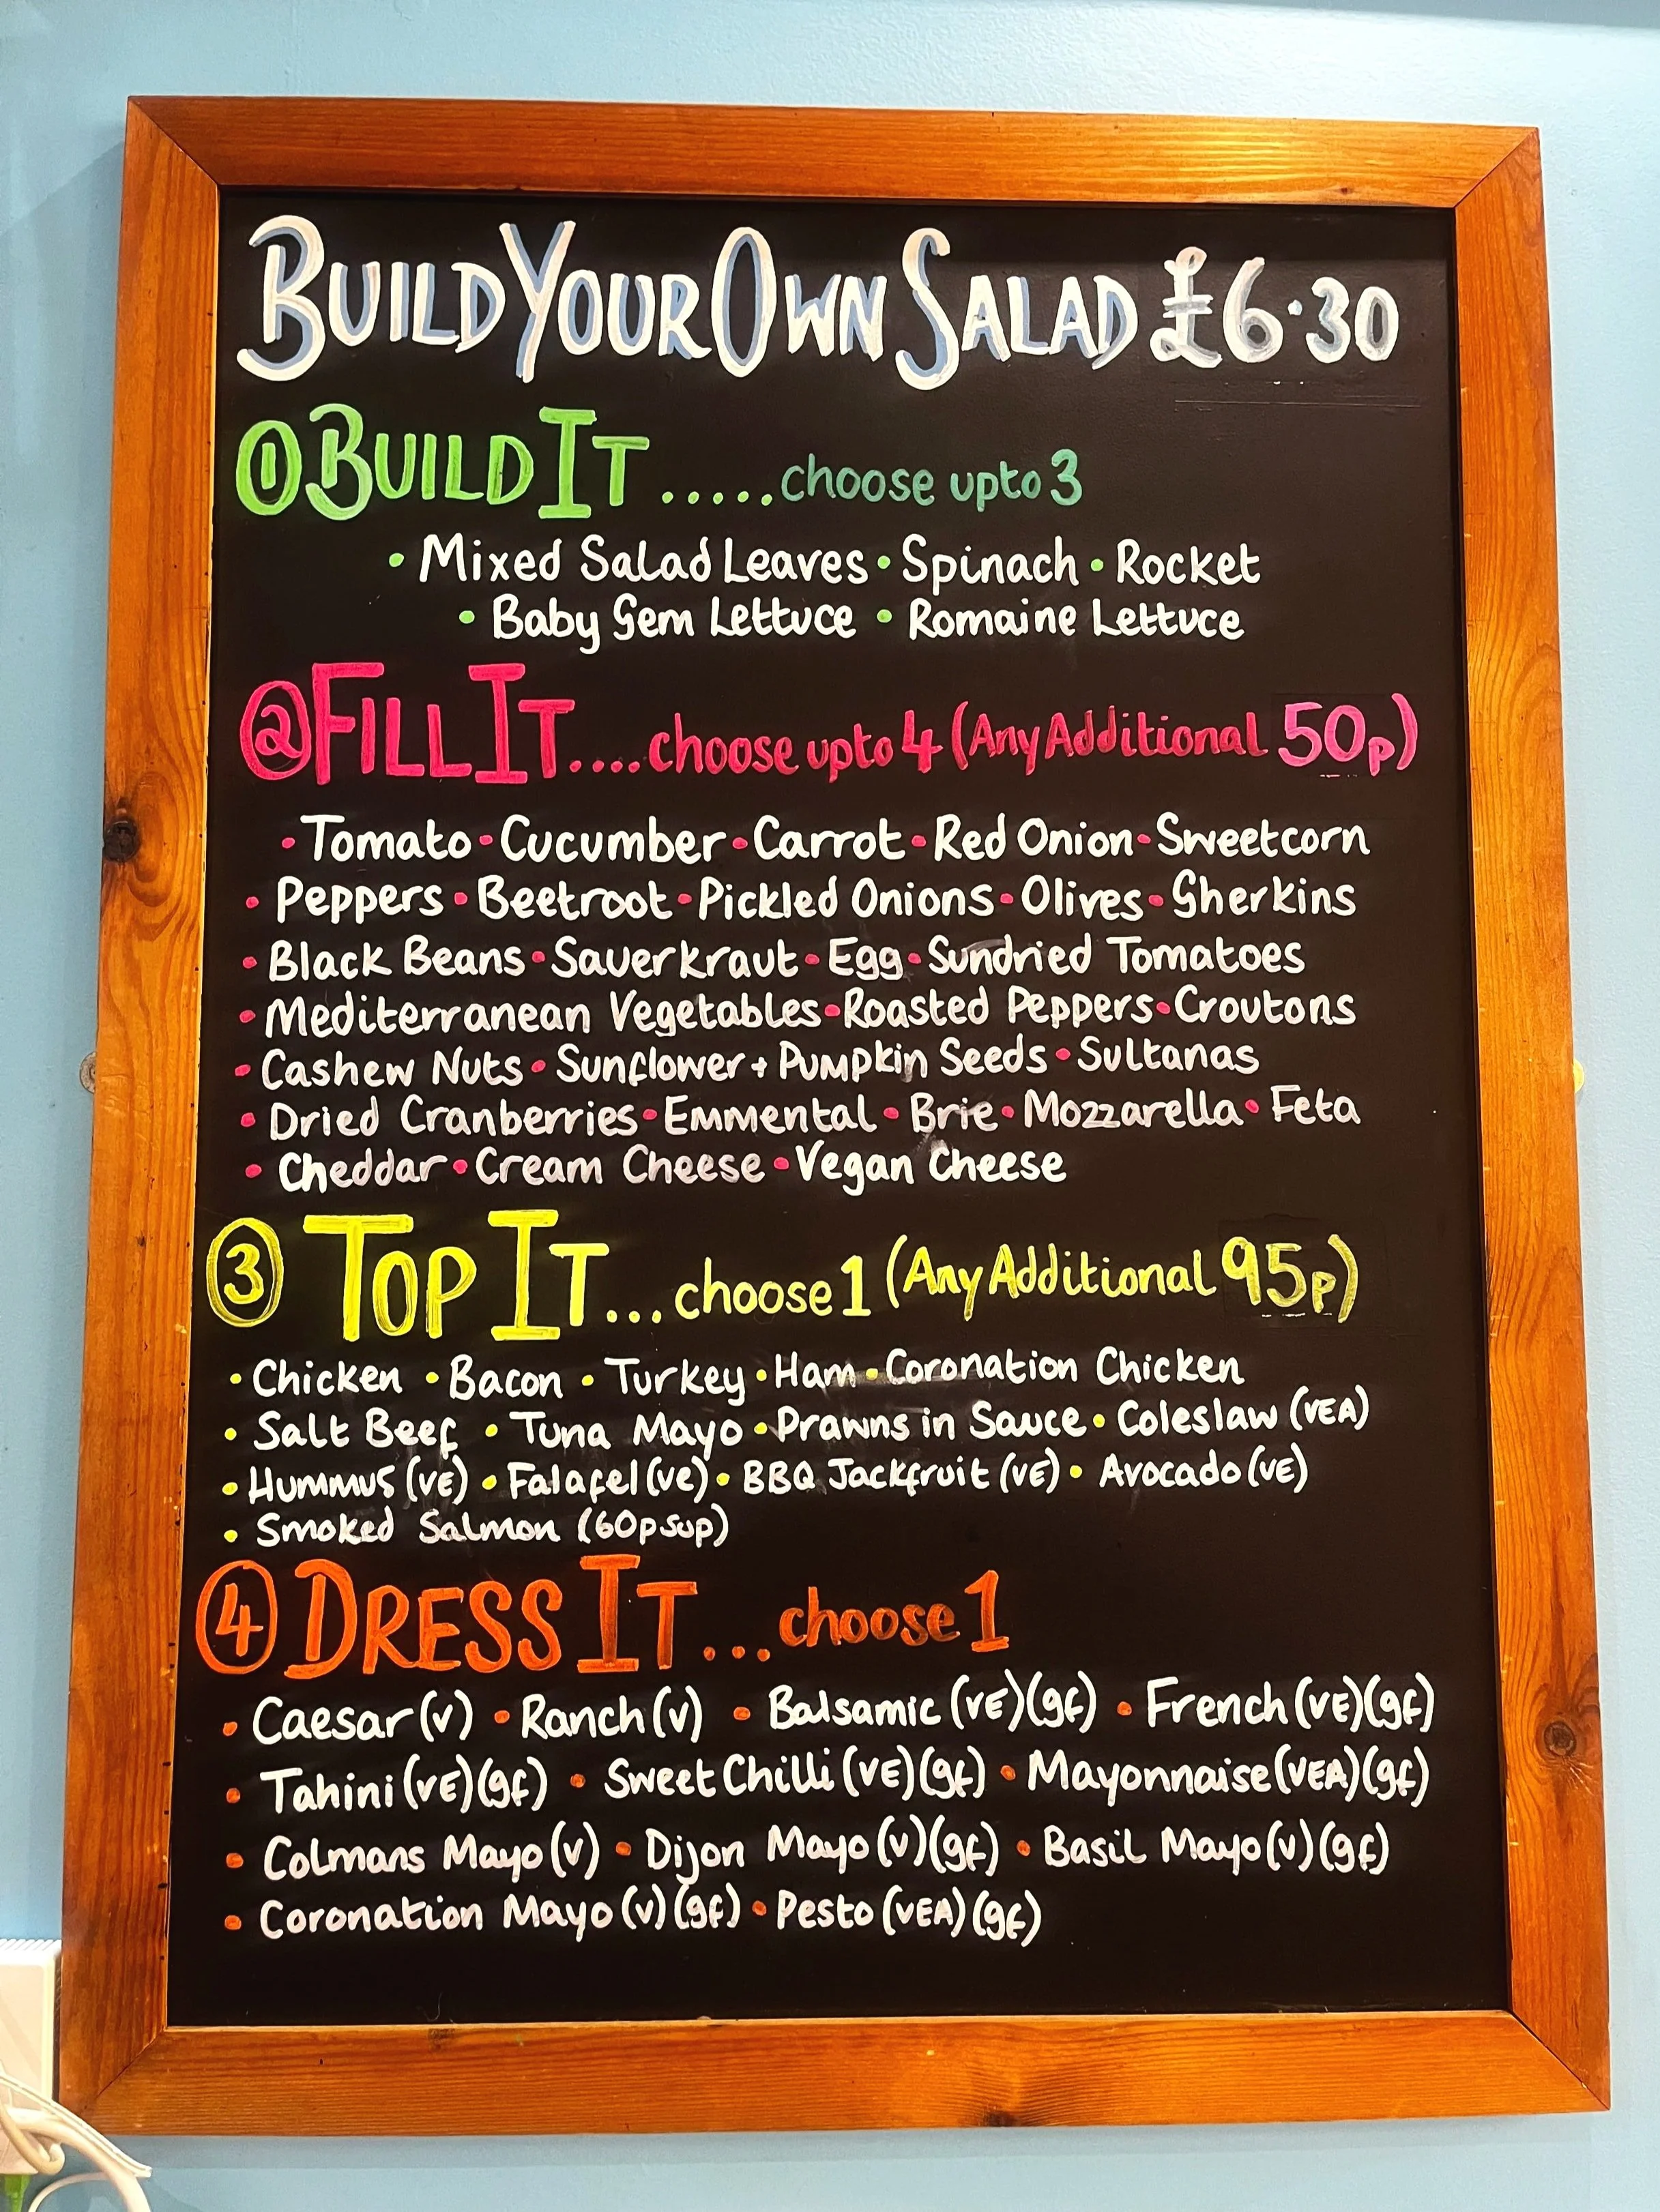 BUILD YOUR OWN SALAD £6.30
① BUILD IT ..... choose upto 3
• Mixed Salad Leaves • Spinach • Rocket
• Baby Gem Lettuce • Romaine Lettuce
② FILL IT .... choose upto 4 (Any Additional 50p)
• Tomato • Cucumber • Carrot • Red Onion • Sweetcorn
• Peppers • Beetroot • Pickled Onions • Olives • Gherkins
• Black Beans • Sauerkraut • Egg • Sundried Tomatoes
• Mediterranean Vegetables • Roasted Peppers • Croutons
• Cashew Nuts • Sunflower + Pumpkin Seeds • Sultanas
• Dried Cranberries • Emmental • Brie • Mozzarella • Feta
• Cheddar • Cream Cheese • Vegan Cheese
③ TOP IT ... choose 1 (Any Additional 95p)
• Chicken • Bacon • Turkey • Ham • Coronation Chicken
• Salt Beef • Tuna Mayo • Prawns in Sauce • Coleslaw (VEA)
• Hummus (VE) • Falafel (ve) • BBQ Jackfruit (VE) • Avocado (VE)
• Smoked Salmon (60p sup)
④ DRESS IT ... choose 1
• Caesar (v) • Ranch (v) • Balsamic (VE) (gf) • French (VE) (gf)
• Tahini (VE) (gf) • Sweet Chilli (VE) (gf) • Mayonnaise (VEA) (gf)
• Colmans Mayo (v) • Dijon Mayo (v) (gf) • Basil Mayo (v) (gf)
• Coronation Mayo (v) (gf) • Pesto (VEA) (gf)